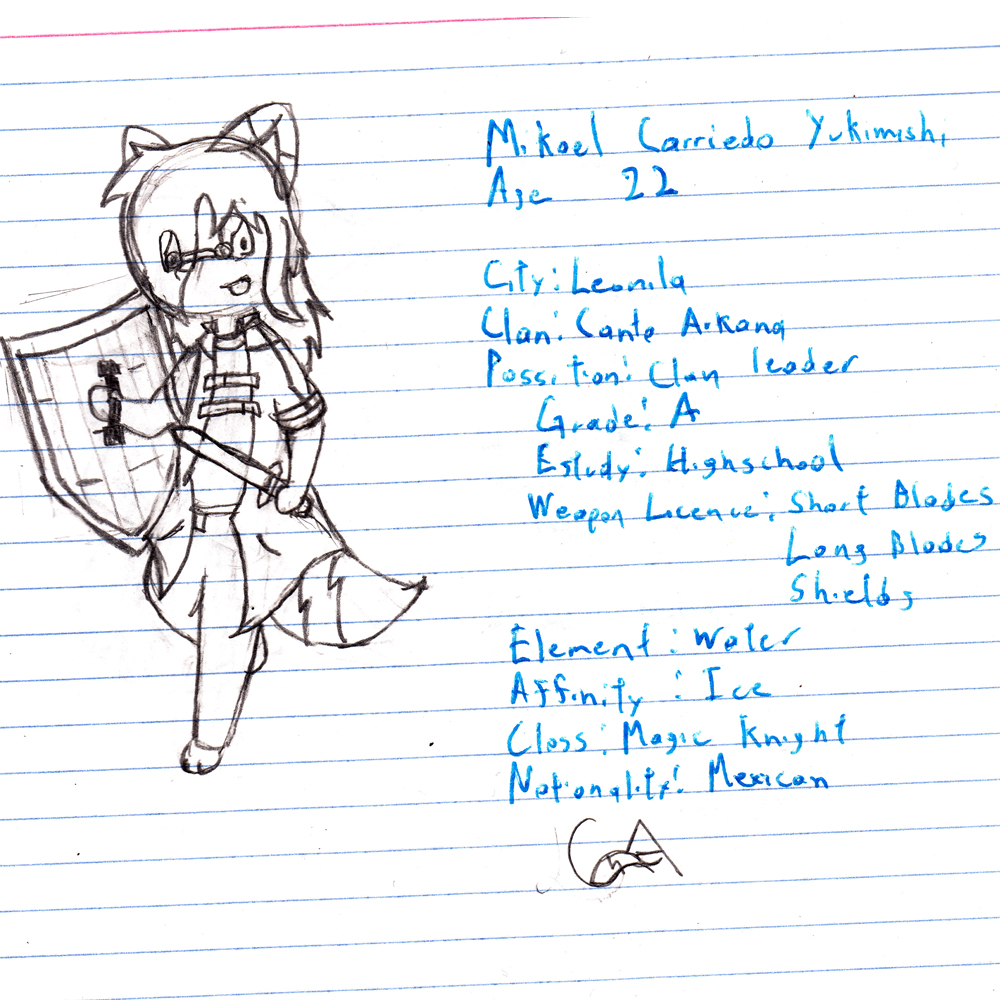 Mikael Carriedo Yukimishi
Age 22
City: Leonila
Clan: Cante Arkana
Possition: Clan leader
Grade: A
Estudy: Highschool
Weapon Licence: Short Blades
Long Blades
Shields
Element: Water
Affinity: Ice
Class: Magic Knight
Nationality: Mexican
CA